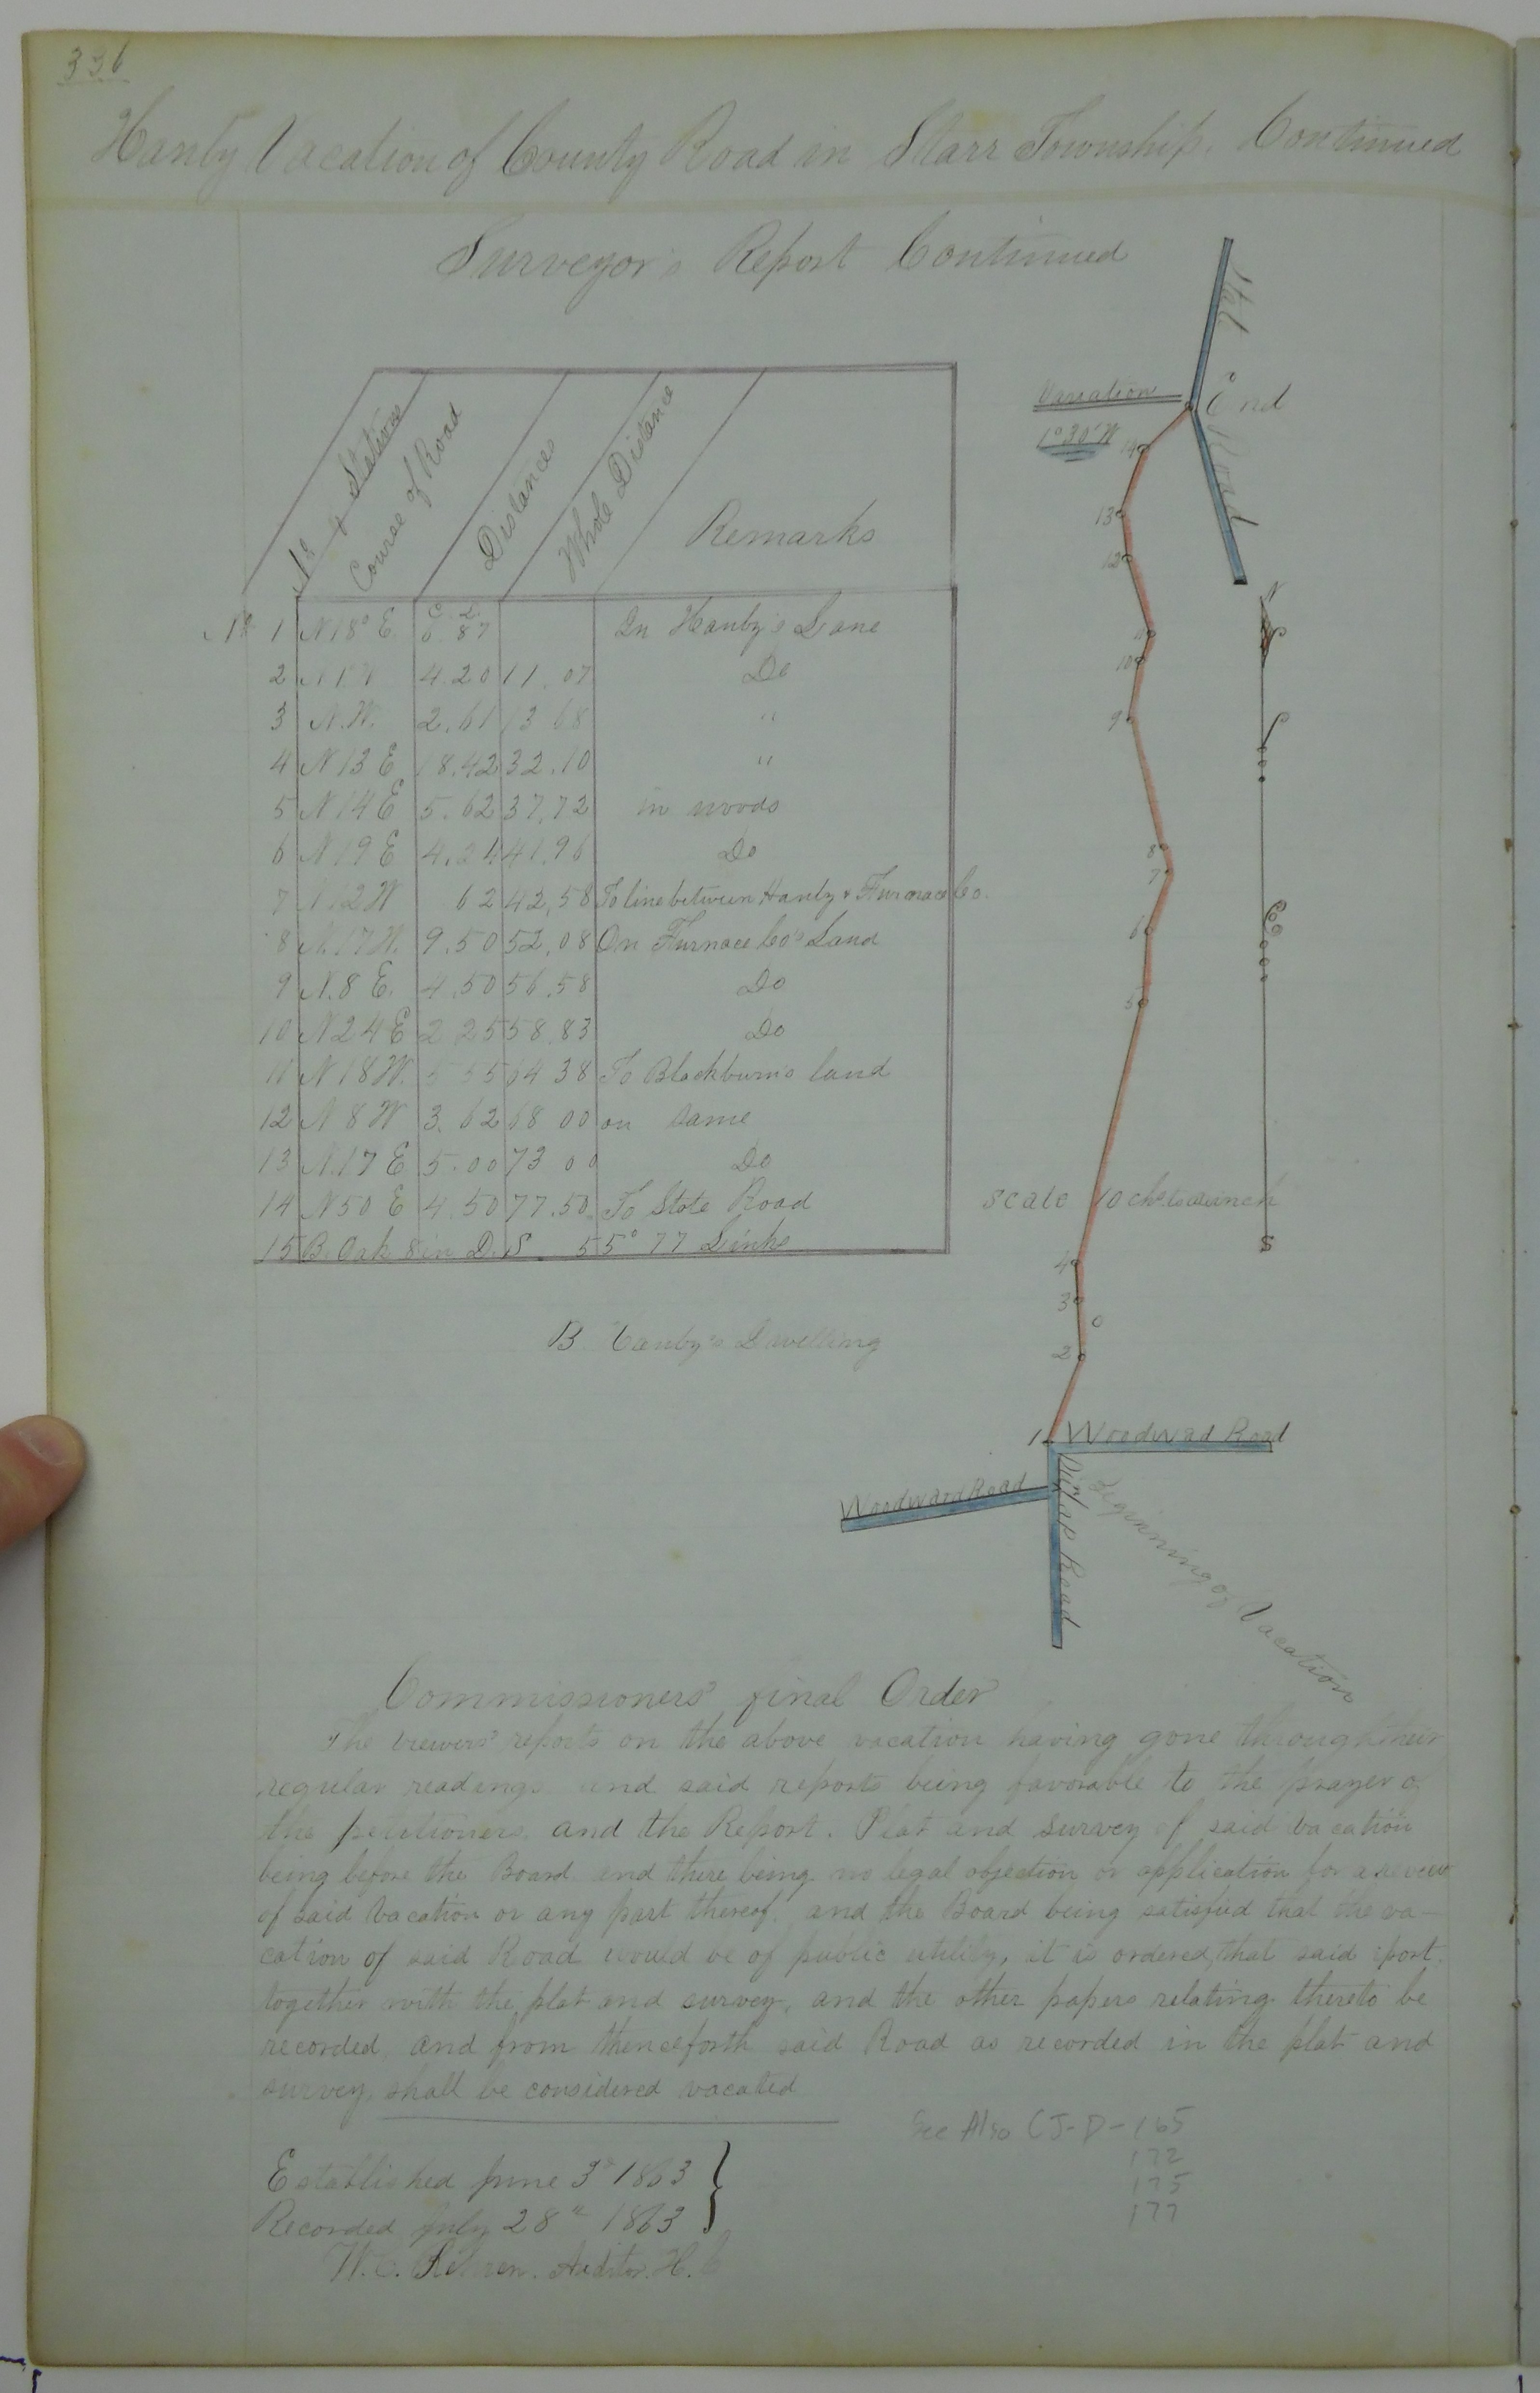 336
Hanby Vacation of County Road in Starr Township. Continued
Surveyor's Report Continued
No of Stations
Course of Road
Distances
Whole Distance
Remarks
C. L.
No 1 N 18° E. 6.87 On Hanby's Lane
2 4.20 11.07 Do
3 N.W. 2.61 13 68 "
4 N 13 E 18.42 32.10 "
5 N 14 E 5.62 37.72 in woods
6 N 19 E 4.24 41.96 Do
7 N.12 W 62 42.58 To line between Hanby & Furnace Co.
8 N.17 W. 9.50 52.08 On Furnace Co's Land
9 N.8 E. 4.50 56.58 Do
10 N 24 E 2 25 58.83 Do
11 N 18 W. 5 55 64 38 To Blackburn's land
12 N 8 W 3.62 68 00 on same
13 N.17 E 5.00 73 00 Do
14 N 50 E 4.50 77.50 To State Road
15 B. Oak 8 in D. S 55° 77 Links
State
Road
Variation
1° 30' W
End
14
13
12
11
10
9
8
7
6
5
4
3
2
1
N
S
Co
scale 10 chs. to an inch
S
B Hanby's Dwelling
Woodward Road
Woodward Road
Dunlap Road
Beginning of Vacation
Commissioners' final Order
The viewers' reports on the above vacation having gone through their
regular readings and said reports being favorable to the prayer of
the petitioners and the Report. Plat and survey of said vacation
being before the Board and there being no legal objection or application for a review
of said Vacation or any part thereof. and the Board being satisfied that the va-
cation of said Road would be of public utility, it is ordered, that said report
together with the plat and survey, and the other papers relating thereto be
recorded, and from thenceforth said Road as recorded in the plat and
survey, shall be considered vacated
Established June 3d 1863
Recorded July 28th 1863
W. C. Auditor. H. C
See Also CJ-D-165
172
175
177